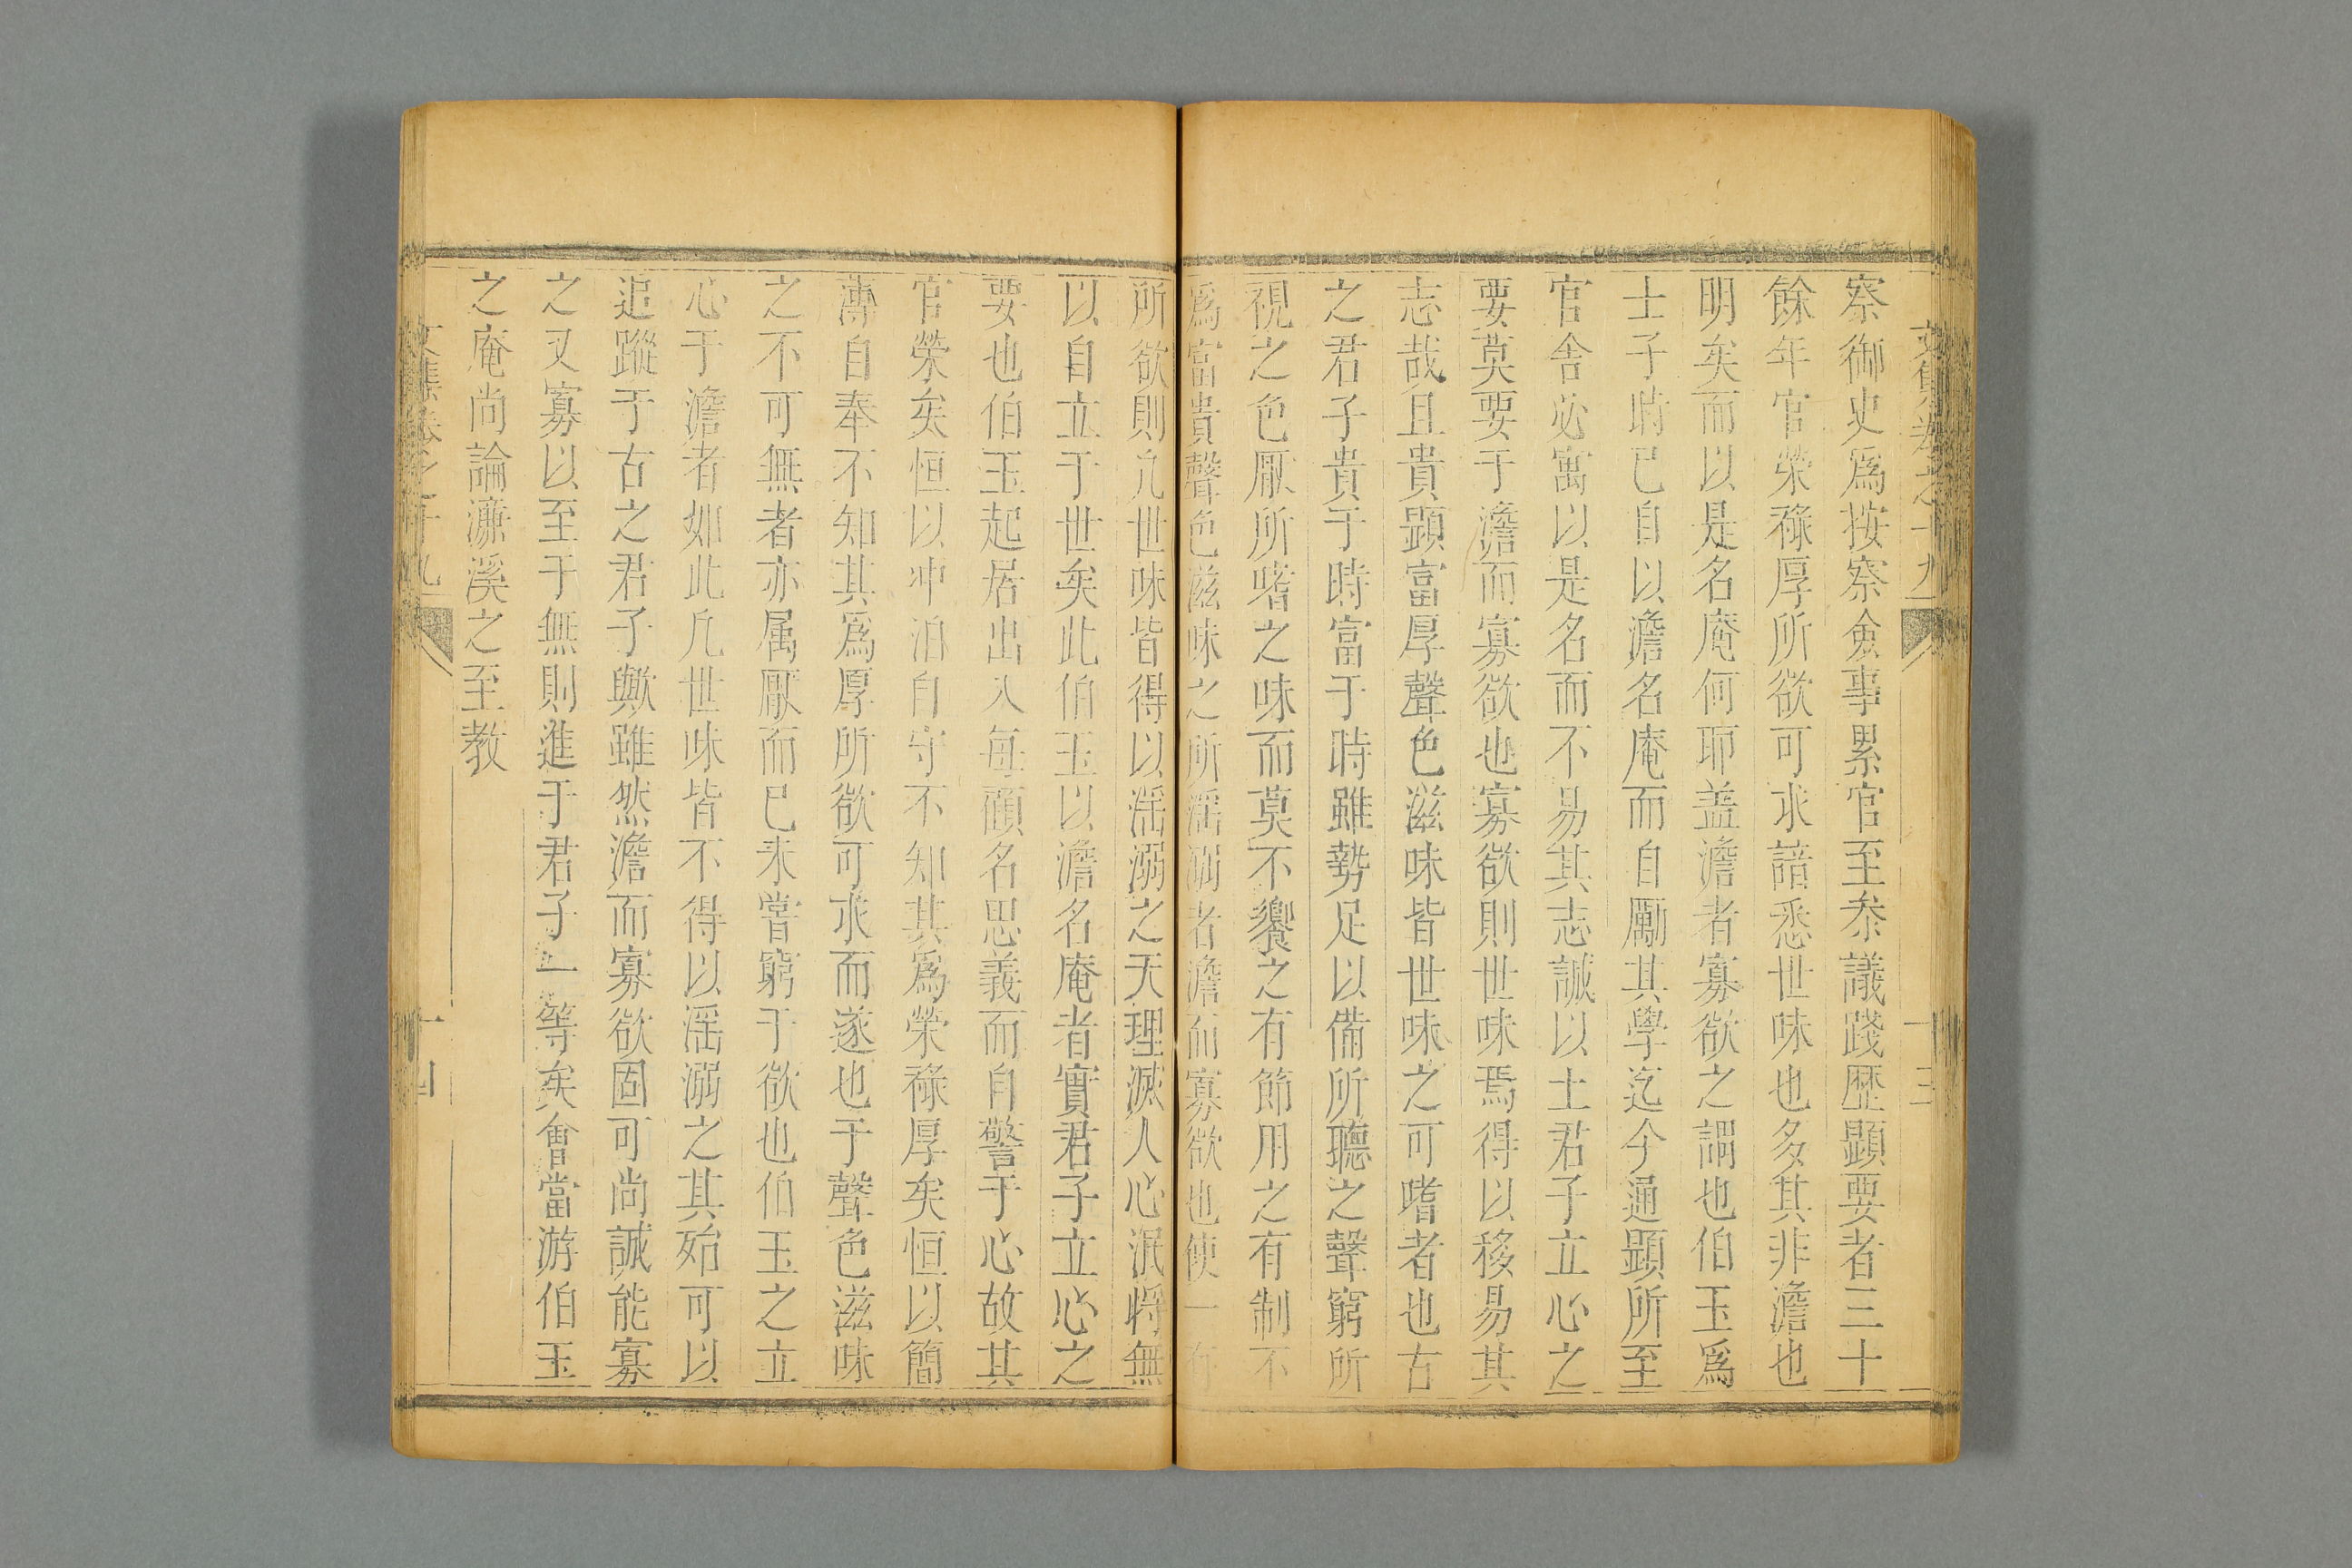 察御史爲按察僉事累官至叅議踐歴顕要者三十
餘年官榮祿厚所欲可求諳悉世味也多其非澹也
明矣而以是名庵何耶盖澹者寡欲之謂也伯玉爲
士子時已自以澹名庵而自勵其學迄今通顕所至
官舎必寓以是名而不易其志誠以士君子立心之
要莫要于澹而寡欲也寡欲則世味焉得以移易其
志哉且貴顕富厚聲色滋味皆世味之可嗜者也古
之君子貴于時富于時雖勢足以備所聽之聲窮所
視之色厭所嗜之味而莫不饗之有節用之有制不
爲富貴聲色滋味之所滛溺者澹而寡欲也使一有
所欲則凢世味皆得以滛溺之天理滅人心泯將無
以自立于世矣此伯玉以澹名庵者實君子立心之
要也伯玉起居出入每顧名思義而自警于心故其
官榮矣恒以冲泊自守不知其爲榮祿厚矣恒以簡
薄自奉不知其爲厚所欲可求而遂也于聲色滋味
之不可無者亦属厭而已未嘗窮于欲也伯玉之立
心于澹者如此凢世味皆不得以滛溺之其殆可以
追蹤于古之君子歟雖然澹而寡欲固可尚誠能寡
之又寡以至于無則進于君子一等矣會當游伯玉
之庵尚論濂溪之至教
文集卷之十九
十三
文集卷之十九
十四